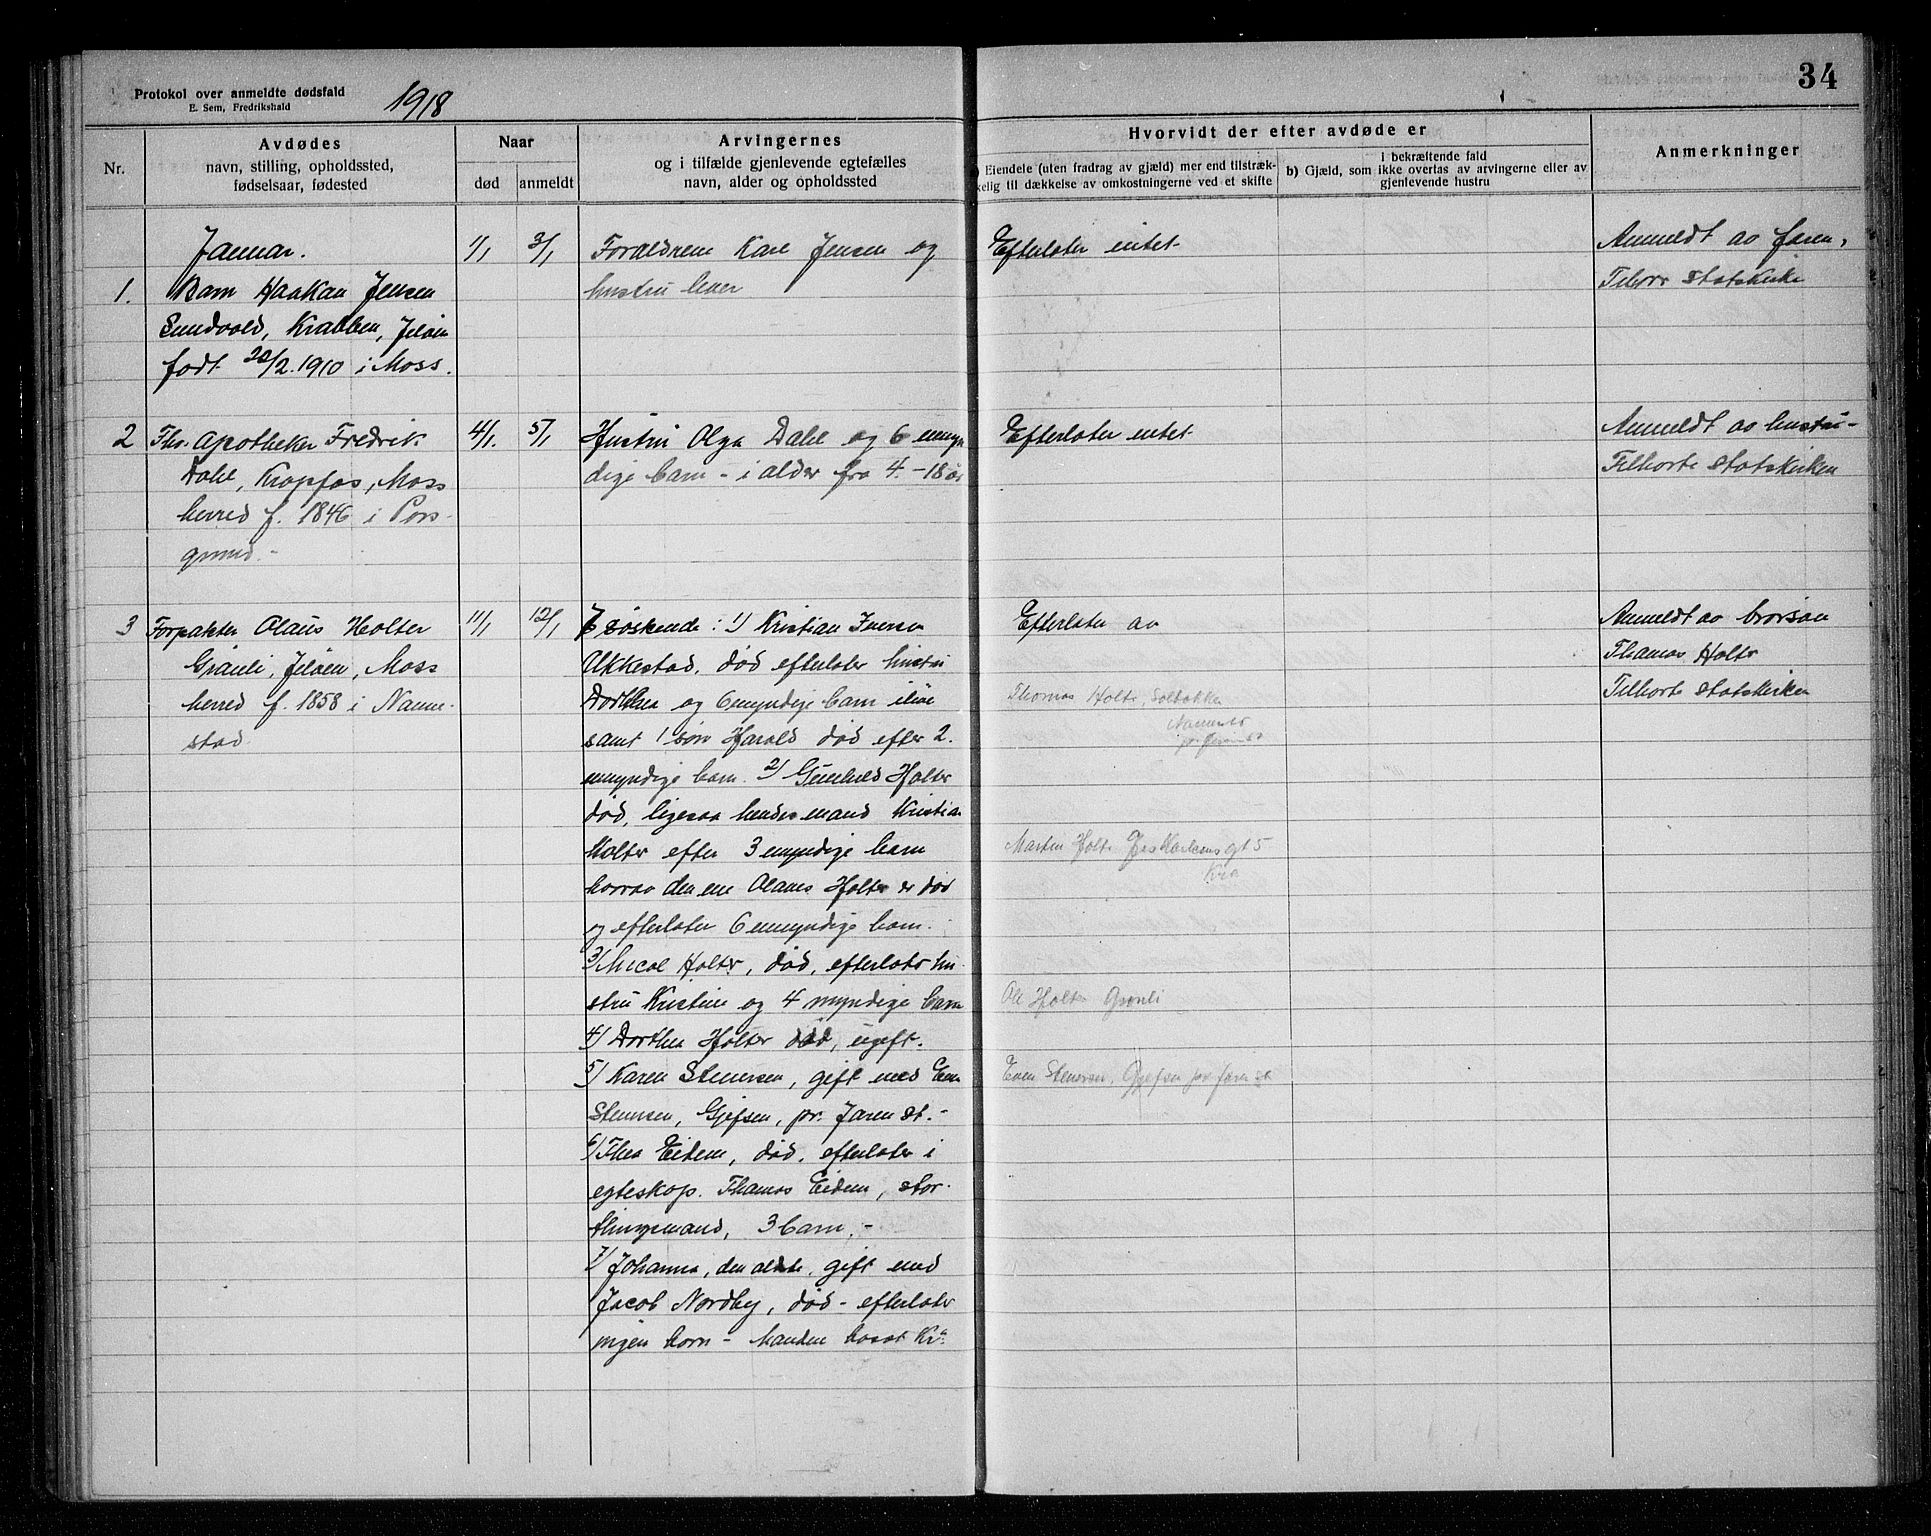 34
Protokol over anmeldte dødsfald
E. Sem, Fredrikshald
1918
Nr.
Avdødes
navn, stilling, opholdssted,
fødselsaar, fødested
Naar
død
anmeldt
Arvingernes
og i tilfælde gjenlevende egtefælles
navn, alder og opholdssted
Hvorvidt der efter avdøde er
Eiendele (uten fradrag av gjæld) mer end tilstræk-
kelig til dækkelse av omkostningerne ved et skifte
i bekræftende fald
b) Gjæld, som ikke overtas av arvingerne eller av
gjenlevende hustru
Anmerkninger
Januar.
1.
Barn Haakan Jensen
Sundvold, Krabben, Jeløen
født 22/2.1910 i Moss.
1/1
3/1
Foraldrene Karl Jensen og
hustru lever
Efterlater intet
Anmeldt av faren,
Tilhører statskirke
2
Fhv. Apotheker Fredrik
Dahl, Krapfos, Moss
herred f. 1846 i Pors-
grund.-
4/1.
5/1
Hustru Olga Dahl og 6 umyn
dige barn - i alder fra 4.-18 år
Efterlater intet
Anmeldt av hustru-
Tilhørte statskirken
3
Forpakter Olaus Holter
Grønli, Jeløen, Moss
herred f. 1858 i Nanne-
stad
11/1
12/1
7 søskende: 1) Kristian Iverso
Ukkestad, død efterlater hustru
Dorthea og 6 myndige barn ilive
samt 1 søn Harald død efter 2.
umyndige barn. 2) Gunhild Holter
død, ligesaa hendes mand Kristian
Holter efter 3 myndige barn
hvorav den ene Olaus Holter er død
og efterlater 6 umyndige barn.
3) Nicol Holter, død, efterlater hu-
stru Kristine og 4 myndige barn
4) Dorthea Holter død, ugift.
5) Karen Stenersen, gift med Even
Stenersen, Gjefsen, pr. Jaren st.-
6) Thea Eidem, død, efterlater i
egteskap. Thomas Eidem, stor-
thingsmand, 3 barn.-
7) Johanna, den ældste, gift med
Jacob Nordby, død - efterlater
ingen børn - Manden bosat Kra.
Efterlater av
Thomas Holte, Solbakken
Nannestad
Martin Holte gt 5
Kra
Ole Holter Grønli
Even Stenersen, Gjefsen pr Jaren st
Anmeldt av brorsøn
Thomas Holter
Tilhørte statskirken